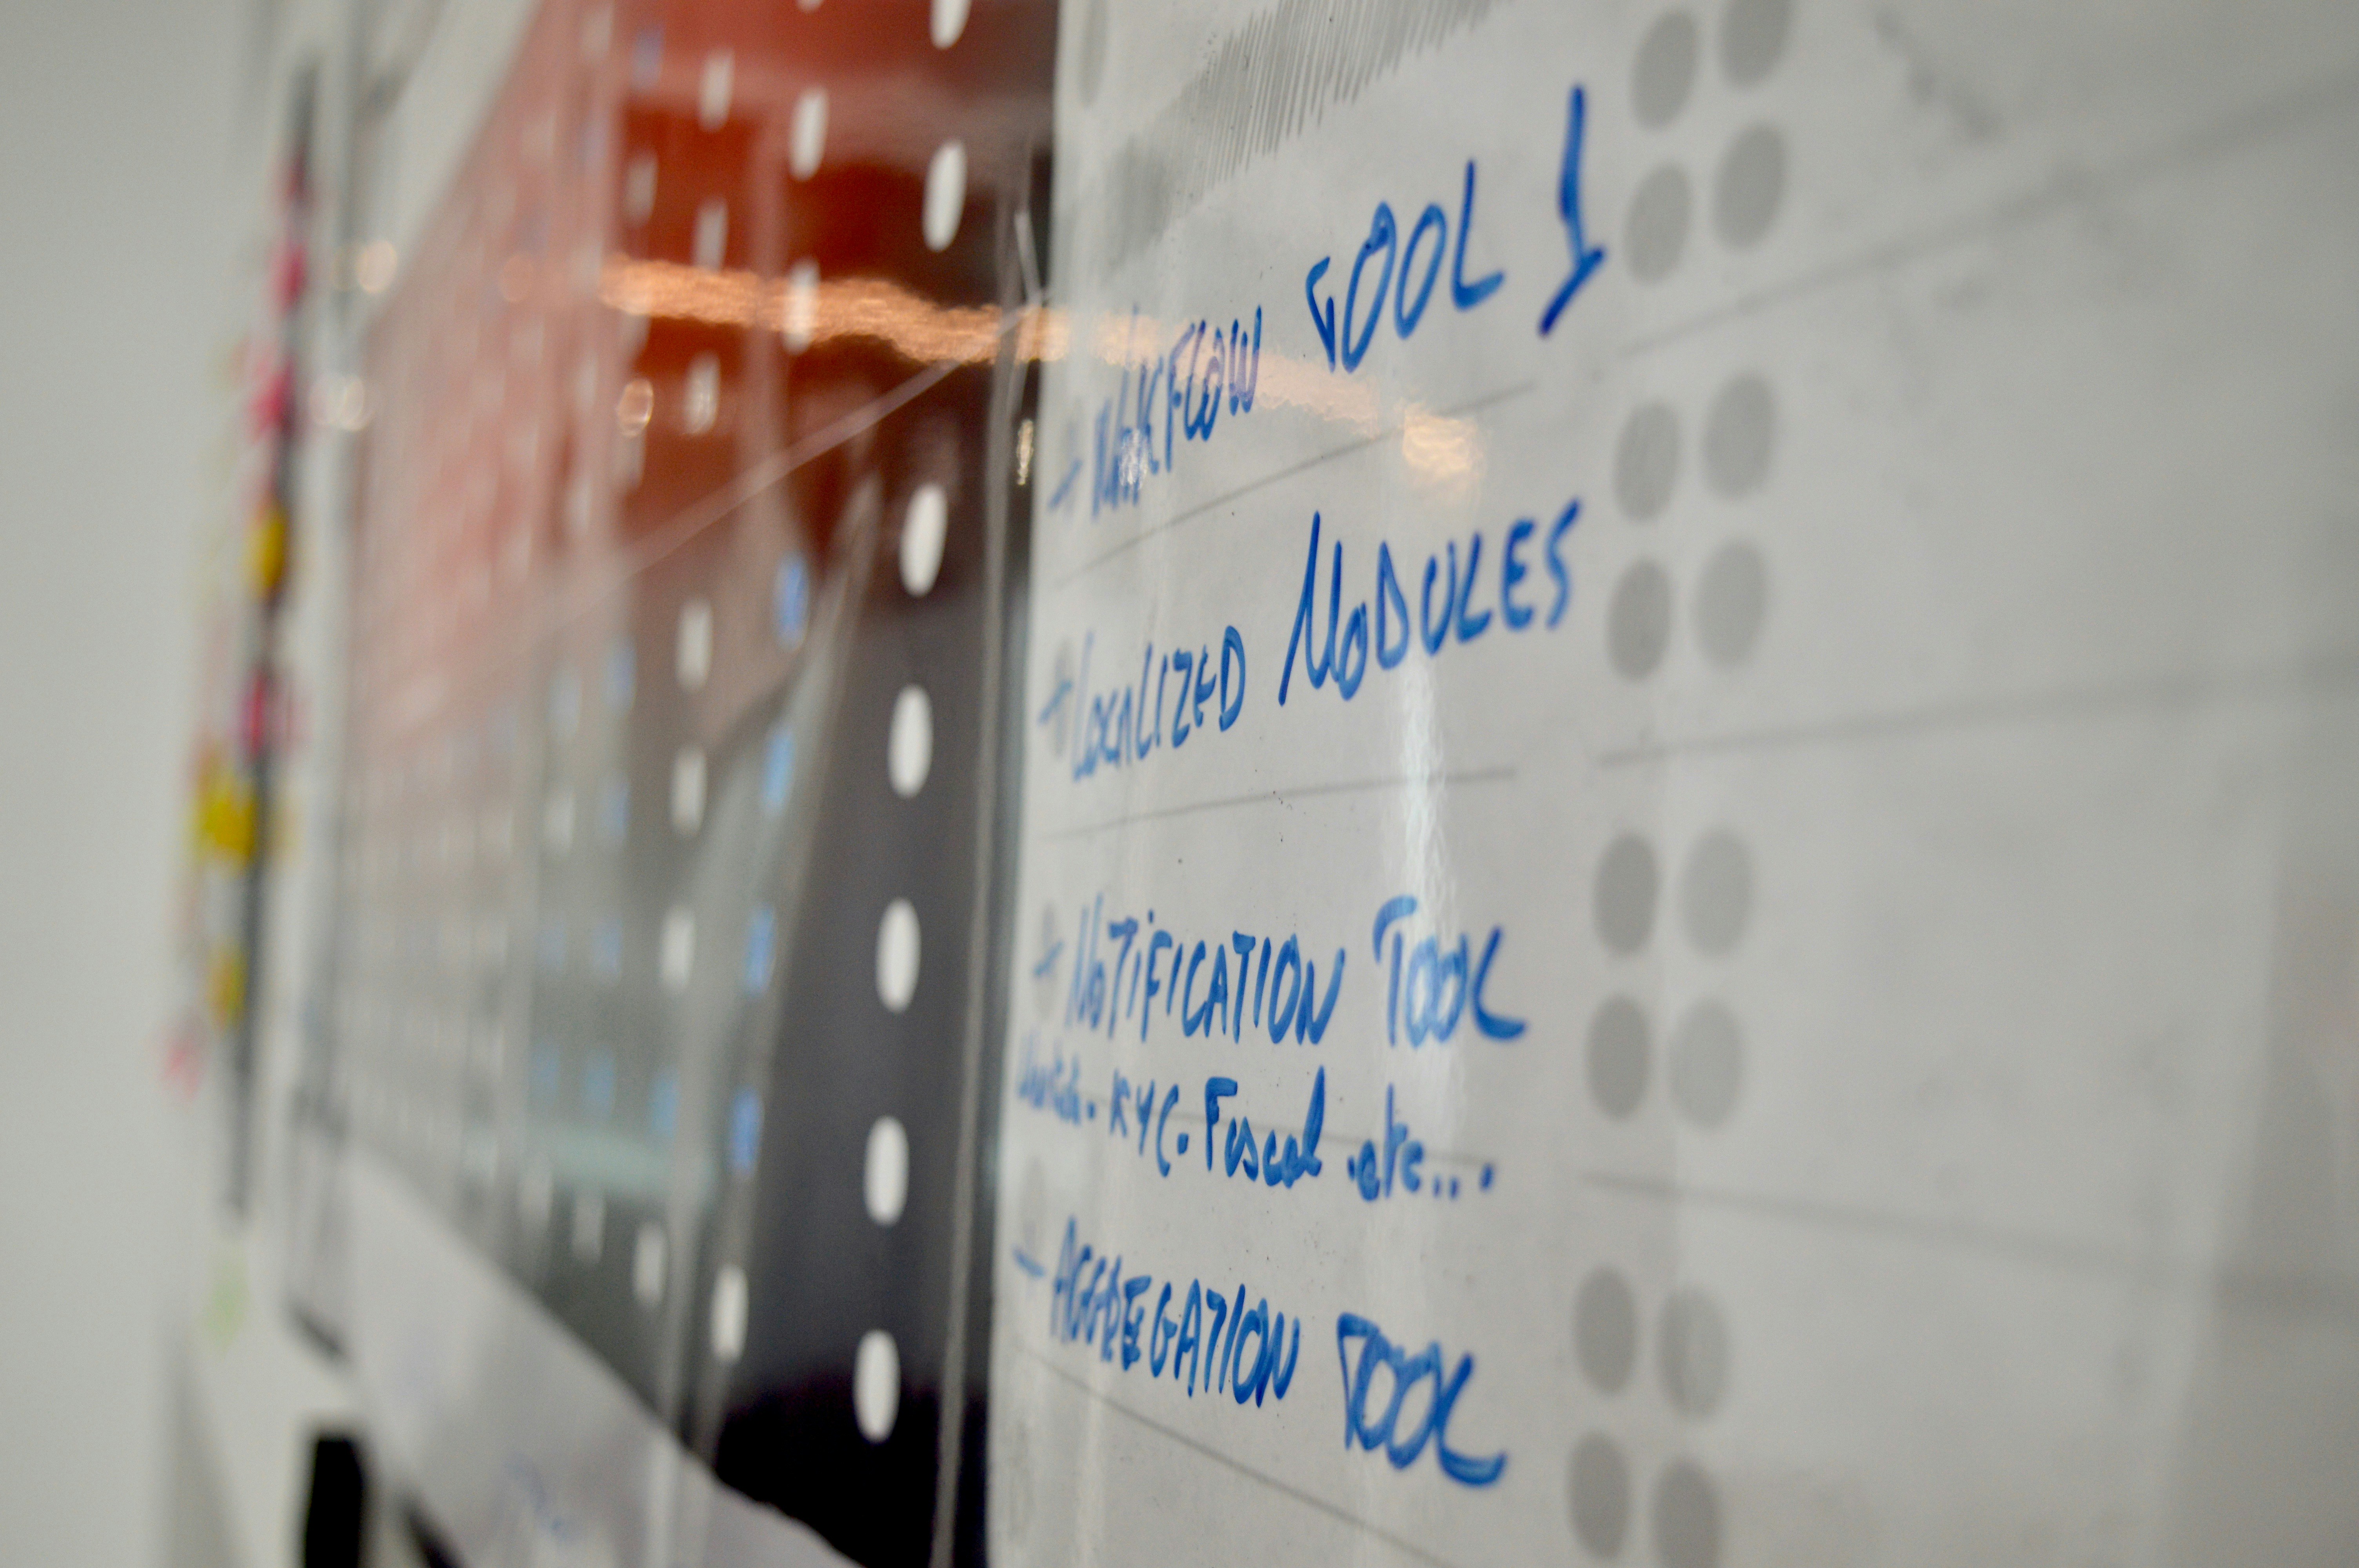 + WORKFLOW TOOL 1
+ LOCALIZED MODULES
+ NOTIFICATION TOOL
KYC. Fiscal .etc...
- AGGREGATION TOOL